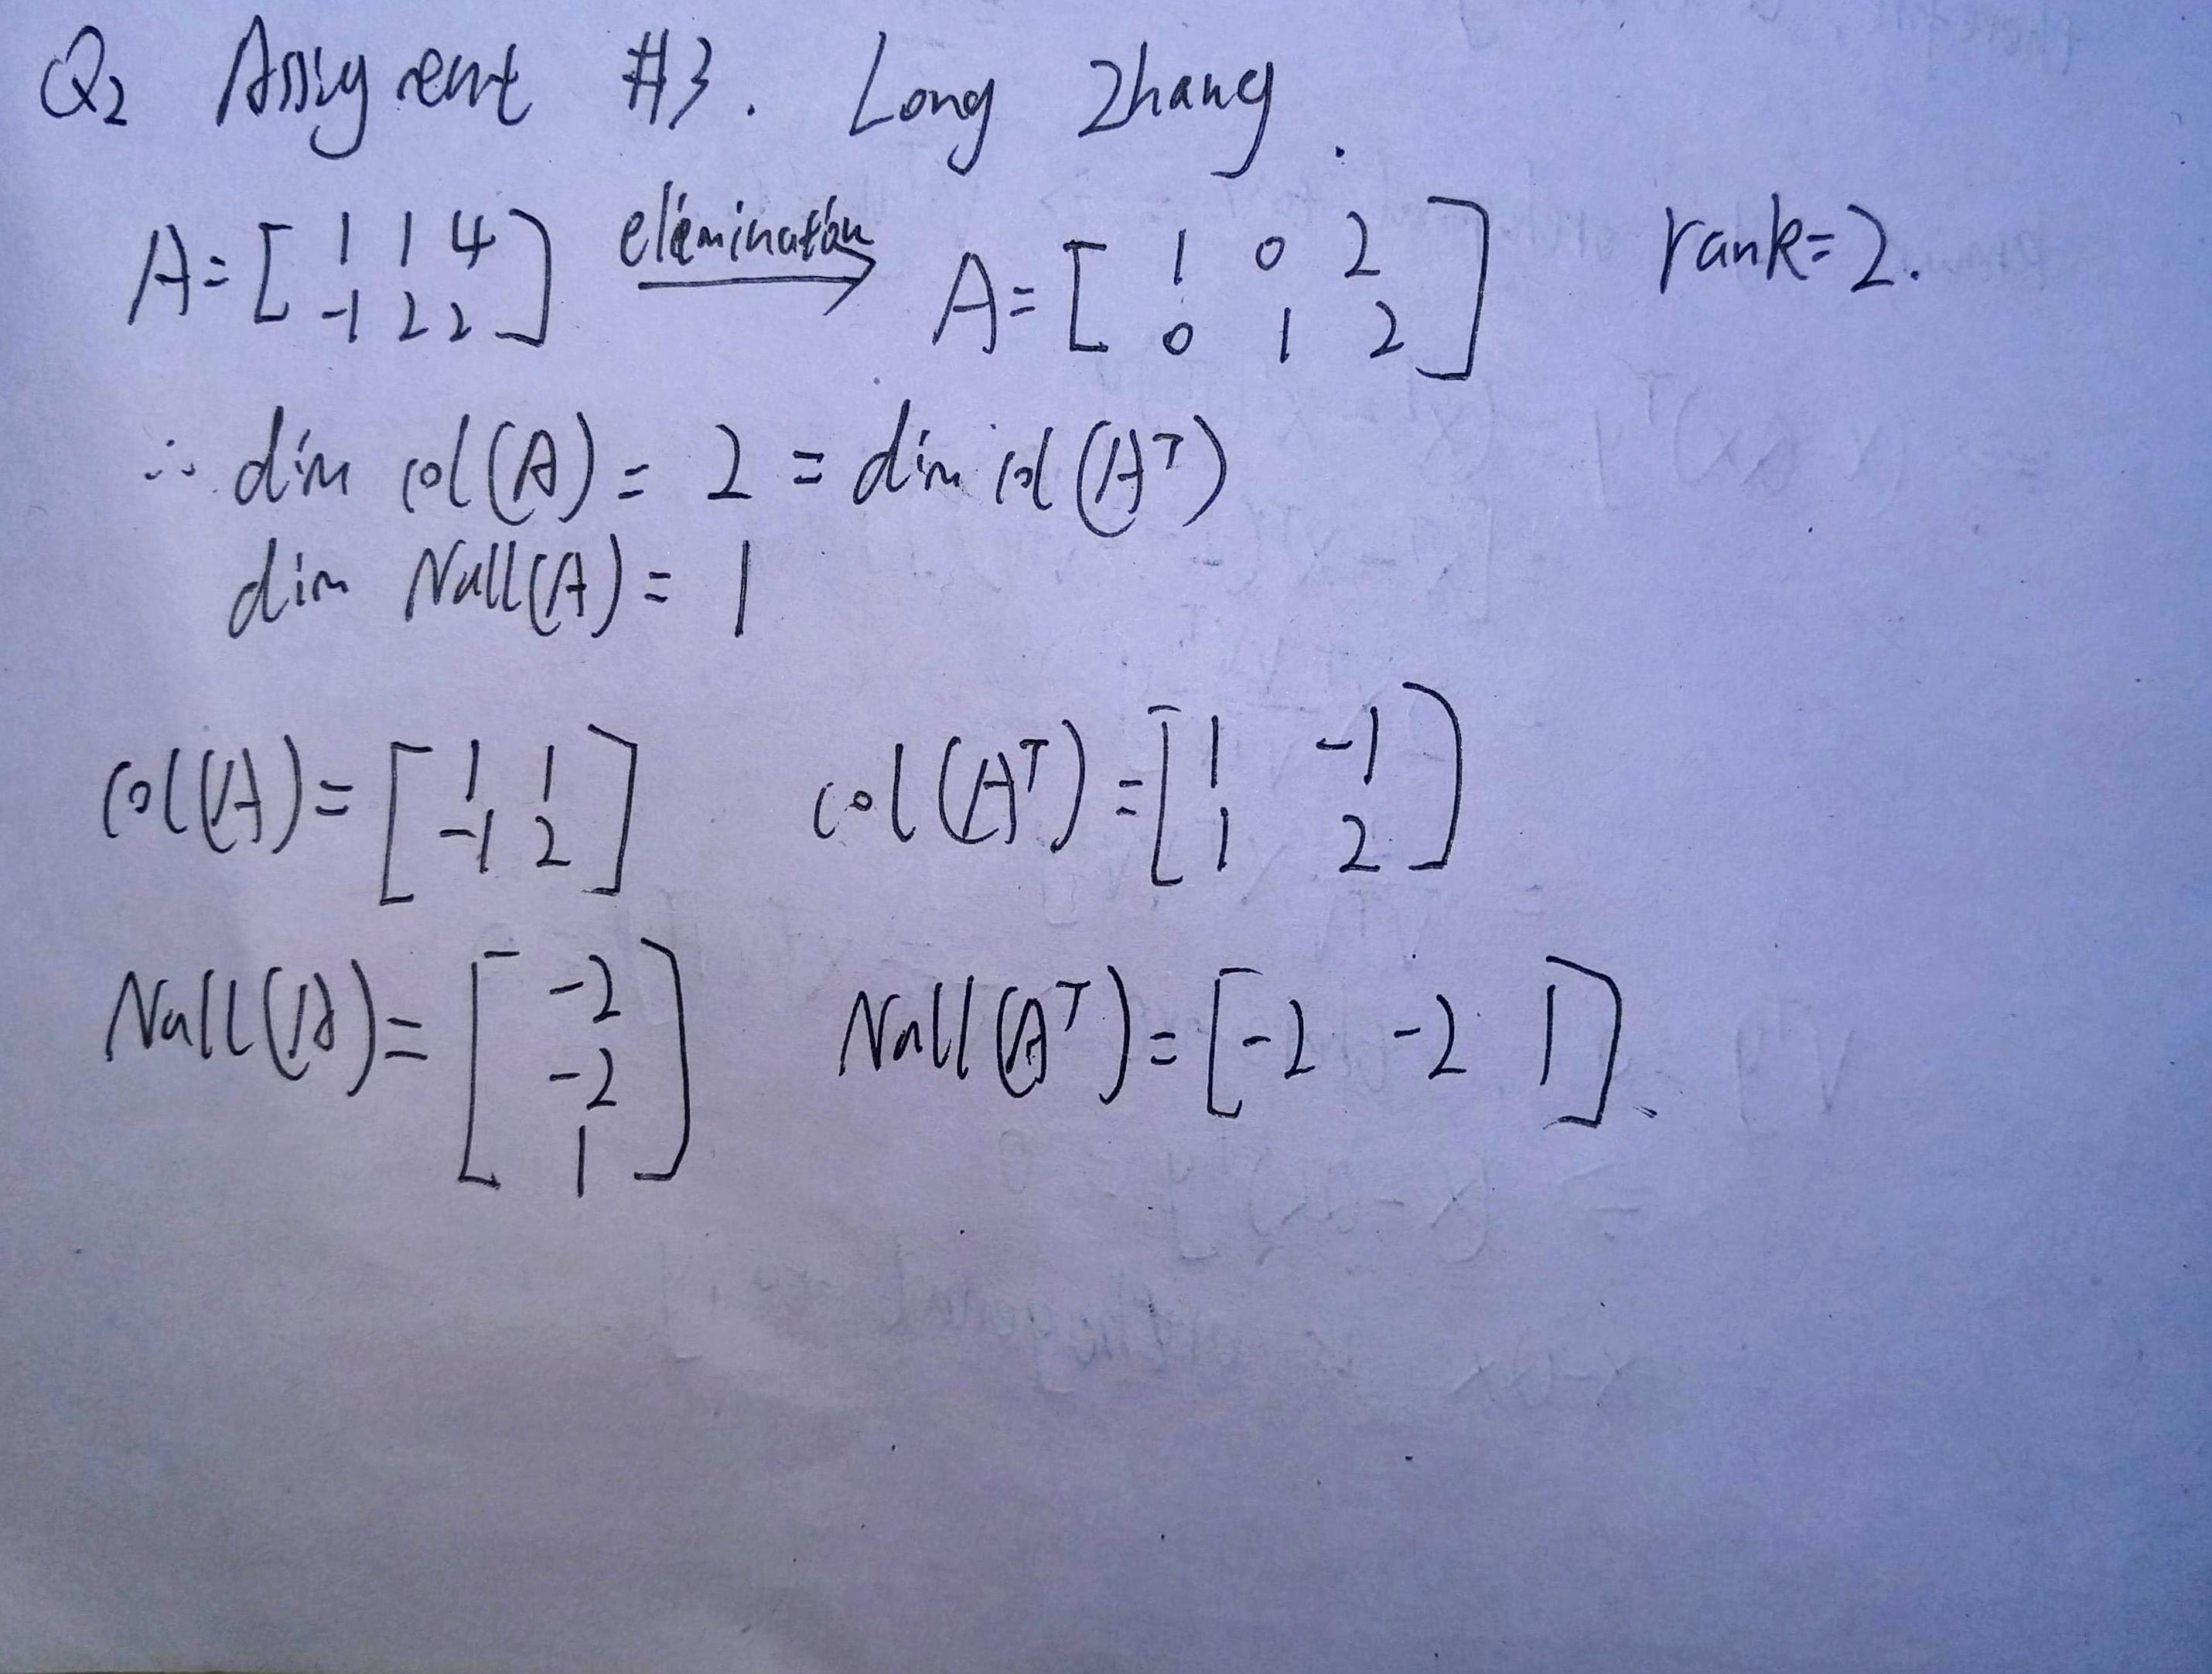 Q2 Assigment #3. Long Zhang.
A = [ 1 1 4 ; -1 2 2 ] elemination → A = [ 1 0 2 ; 0 1 2 ] rank = 2.
∴ dim col(A) = 2 = dim col(Aᵀ)
dim Null(A) = 1
col(A) = [ 1 1 ; -1 2 ] col(Aᵀ) = [ 1 -1 ; 1 2 ]
Null(A) = [ -2 ; -2 ; 1 ] Null(Aᵀ) = [ -2 -2 1 ].